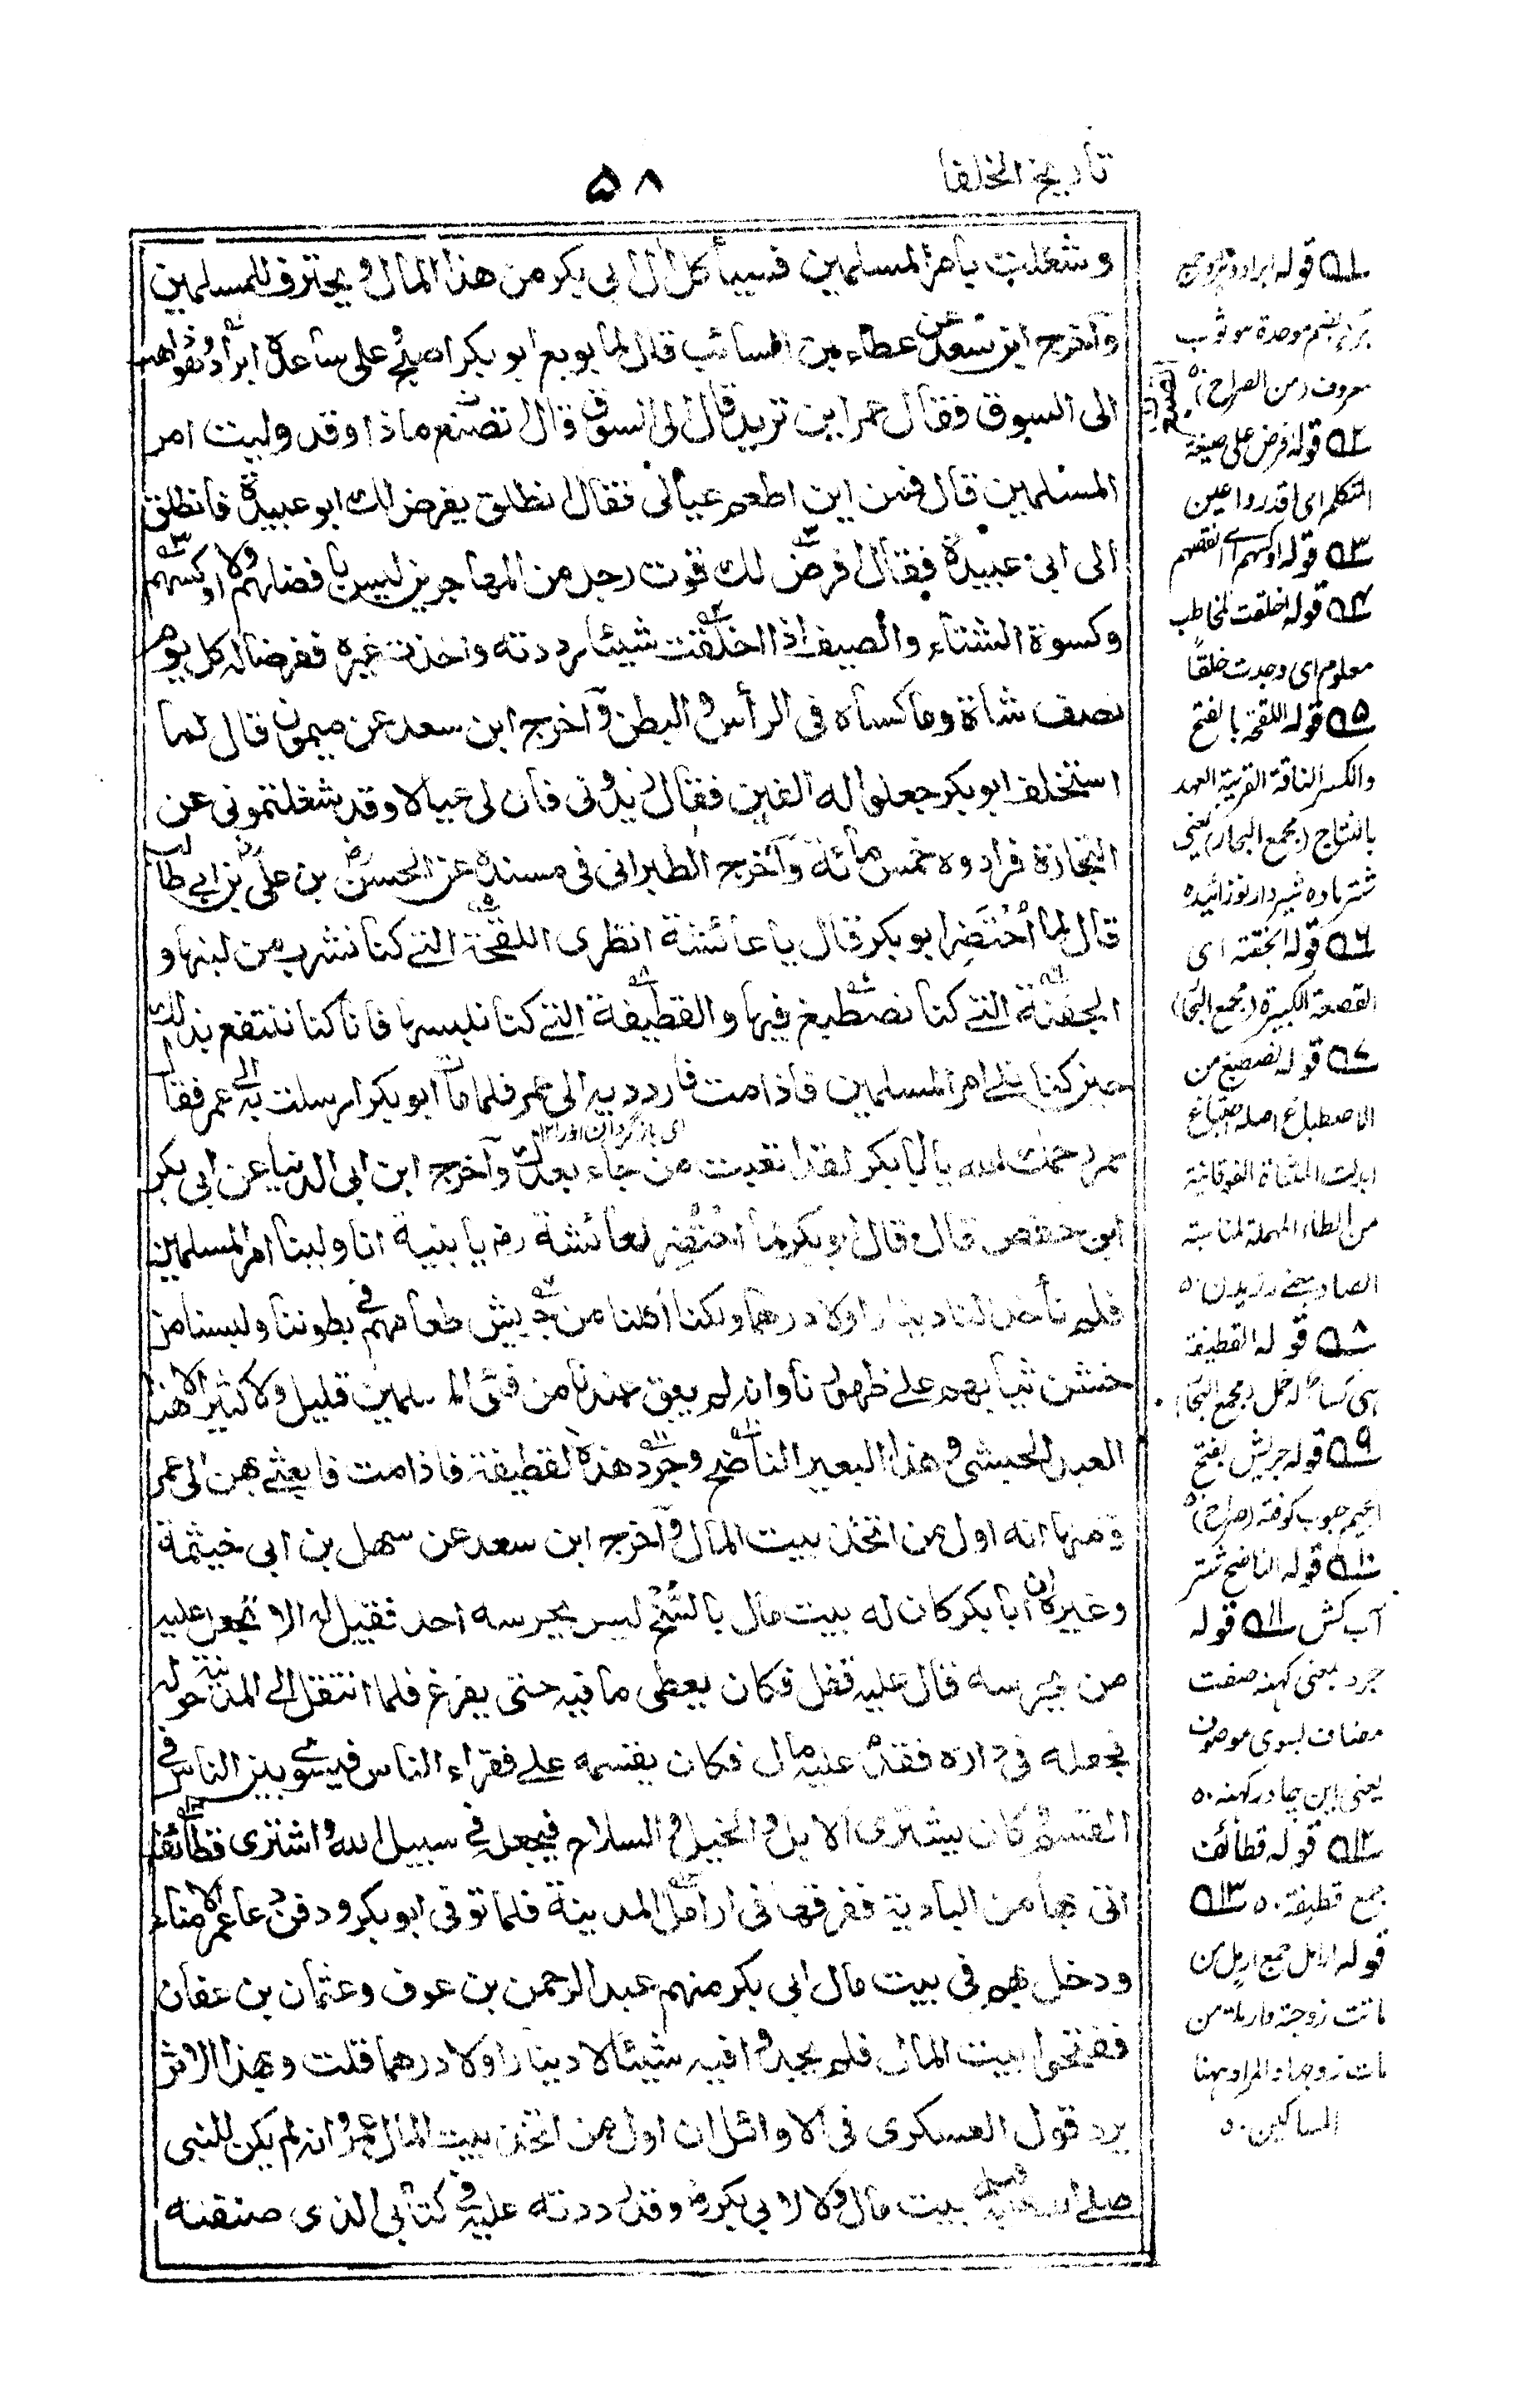 تاريخ الخلفا
۵۸
وشغلت بامر المسلمين فسيأكل ال ابي بكر من هذا المال ويحترف للمسلمين
وآخرج ابن سعد عن عطاء بن السائب قال لما بويع ابو بكر اصبح على ساعده ابراد وهو ذاهب
الى السوق فقال عمر اين تريد قال الى السوق قال تصنع ماذا وقد وليت امر
المسلمين قال فمن اين اطعم عيالى فقال انطلق يفرض لك ابو عبيدة فانطلق
الى ابى عبيدة فقال افرض لك قوت رجل من المهاجرين ليس بافضلهم ولا اوكسهم
وكسوة الشتاء والصيف اذا اخلقت شيئا رددته واخذت غيره ففرضا له كل يوم
نصف شاة وما كساه فى الرأس والبطن وآخرج ابن سعد عن ميمون قال لما
استخلف ابو بكر جعلوا له الفين فقال زيدونى فان لى عيالا وقد شغلتمونى عن
التجارة فزادوه خمس مائة وآخرج الطبرانى فى مسنده عن الحسن بن على بن ابي طالب
قال لما احتضر ابو بكر قال يا عائشة انظرى اللقحة التي كنا نشرب من لبنها و
الجفنة التي كنا نصطبغ فيها والقطيفة التي كنا نلبسها فانا كنا ننتفع بذلك
حين كنا نلي امر المسلمين فاذا مت فاردديه الى عمر فلما مات ابو بكر ارسلت به الى عمر فقال
عمر رحمك الله يا ابا بكر لقد اتعبت من جاء بعدك وآخرج ابن ابى الدنيا عن ابى بكر
ابن حفص قال قال ابو بكر لما احتضر لعائشة رض يا بنية انا ولينا امر المسلمين
فلم نأخذ لنا دينارا ولا درهما ولكنا اكلنا من جريش طعامهم في بطوننا ولبسنا من
خشن ثيابهم على ظهورنا وانه لم يبق عندنا من فئى المسلمين قليل ولا كثير الا هذا
العبد الحبشى وهذا البعير الناضح وجرد هذه القطيفة فاذا مت فابعثي بهن الى عمر
ومنها انه اول من اتخذ بيت المال وآخرج ابن سعد عن سهل بن ابى خيثمة
وغيره ان ابا بكر كان له بيت مال بالسنح ليس يحرسه احد فقيل له الا تجعل عليه
من يحرسه قال عليه قفل فكان يعطى ما فيه حتى يفرغ فلما انتقل الى المدينة حوله
فجعله فى داره فقدم عليه مال فكان يقسمه على فقراء الناس فيسوي بين الناس في
القسم وكان يشترى الابل والخيل والسلاح فيجعل في سبيل الله واشترى قطائف
اتى بها من البادية ففرقها فى ارامل المدينة فلما توفى ابو بكر ودفن دعا عمر الامناء
ودخل بهم فى بيت مال ابى بكر منهم عبد الرحمن بن عوف وعثمان بن عفان
ففتحوا بيت المال فلم يجدوا فيه شيئا لا دينارا ولا درهما قلت وبهذا الاثر
يرد قول العسكرى فى الاوائل ان اول من اتخذ بيت المال عمر وانه لم يكن للنبى
صلى الله عليه وسلم بيت مال ولا لابي بكر رض وقد رددته عليه في كتابى الذى صنفته
اى باز گردان اورا ۱۲
۱ قوله ابراد وهو جمع
برد بضم موحدة هو ثوب
معروف (من الصراح) ۵
۲ قوله افرض على صيغة
المتكلم اى اقدر واعين
۳ قوله اوكسهم اے انقصهم
۴ قوله اخلقت لمخاطب
معلوم اى وجدت خلقا
۵ قوله اللقحة بالفتح
والكسر الناقة القريبة العهد
بالنتاج (مجمع البحار) يعنى
شتر ماده شيردار نوزائيده
۶ قوله الجفنة اى
القصعة الكبيرة (مجمع البحار)
۷ قوله نصطبغ من
الاصطباغ اصله اصتباغ
ابدلت المثناة الفوقانية
من الطاء المهملة لمناسبة
الصاد
۸ قوله القطيفة
هى كساء له خمل (مجمع البحار)
۹ قوله جريش بفتح
الجيم حبوب كوفته (صراح) ۵
۱۰ قوله الناضح شتر
آب كش ۱۱ قوله
جرد بمعنى كهنه صفت
مضاف بسوى موصوف
يعنى اين چادر كهنه ۵
۱۲ قوله قطائف
جمع قطيفة ۵ ۱۳
قوله ارامل جمع ارمل من
ماتت زوجته وارملة من
مات زوجها والمراد ههنا
المساكين ۵